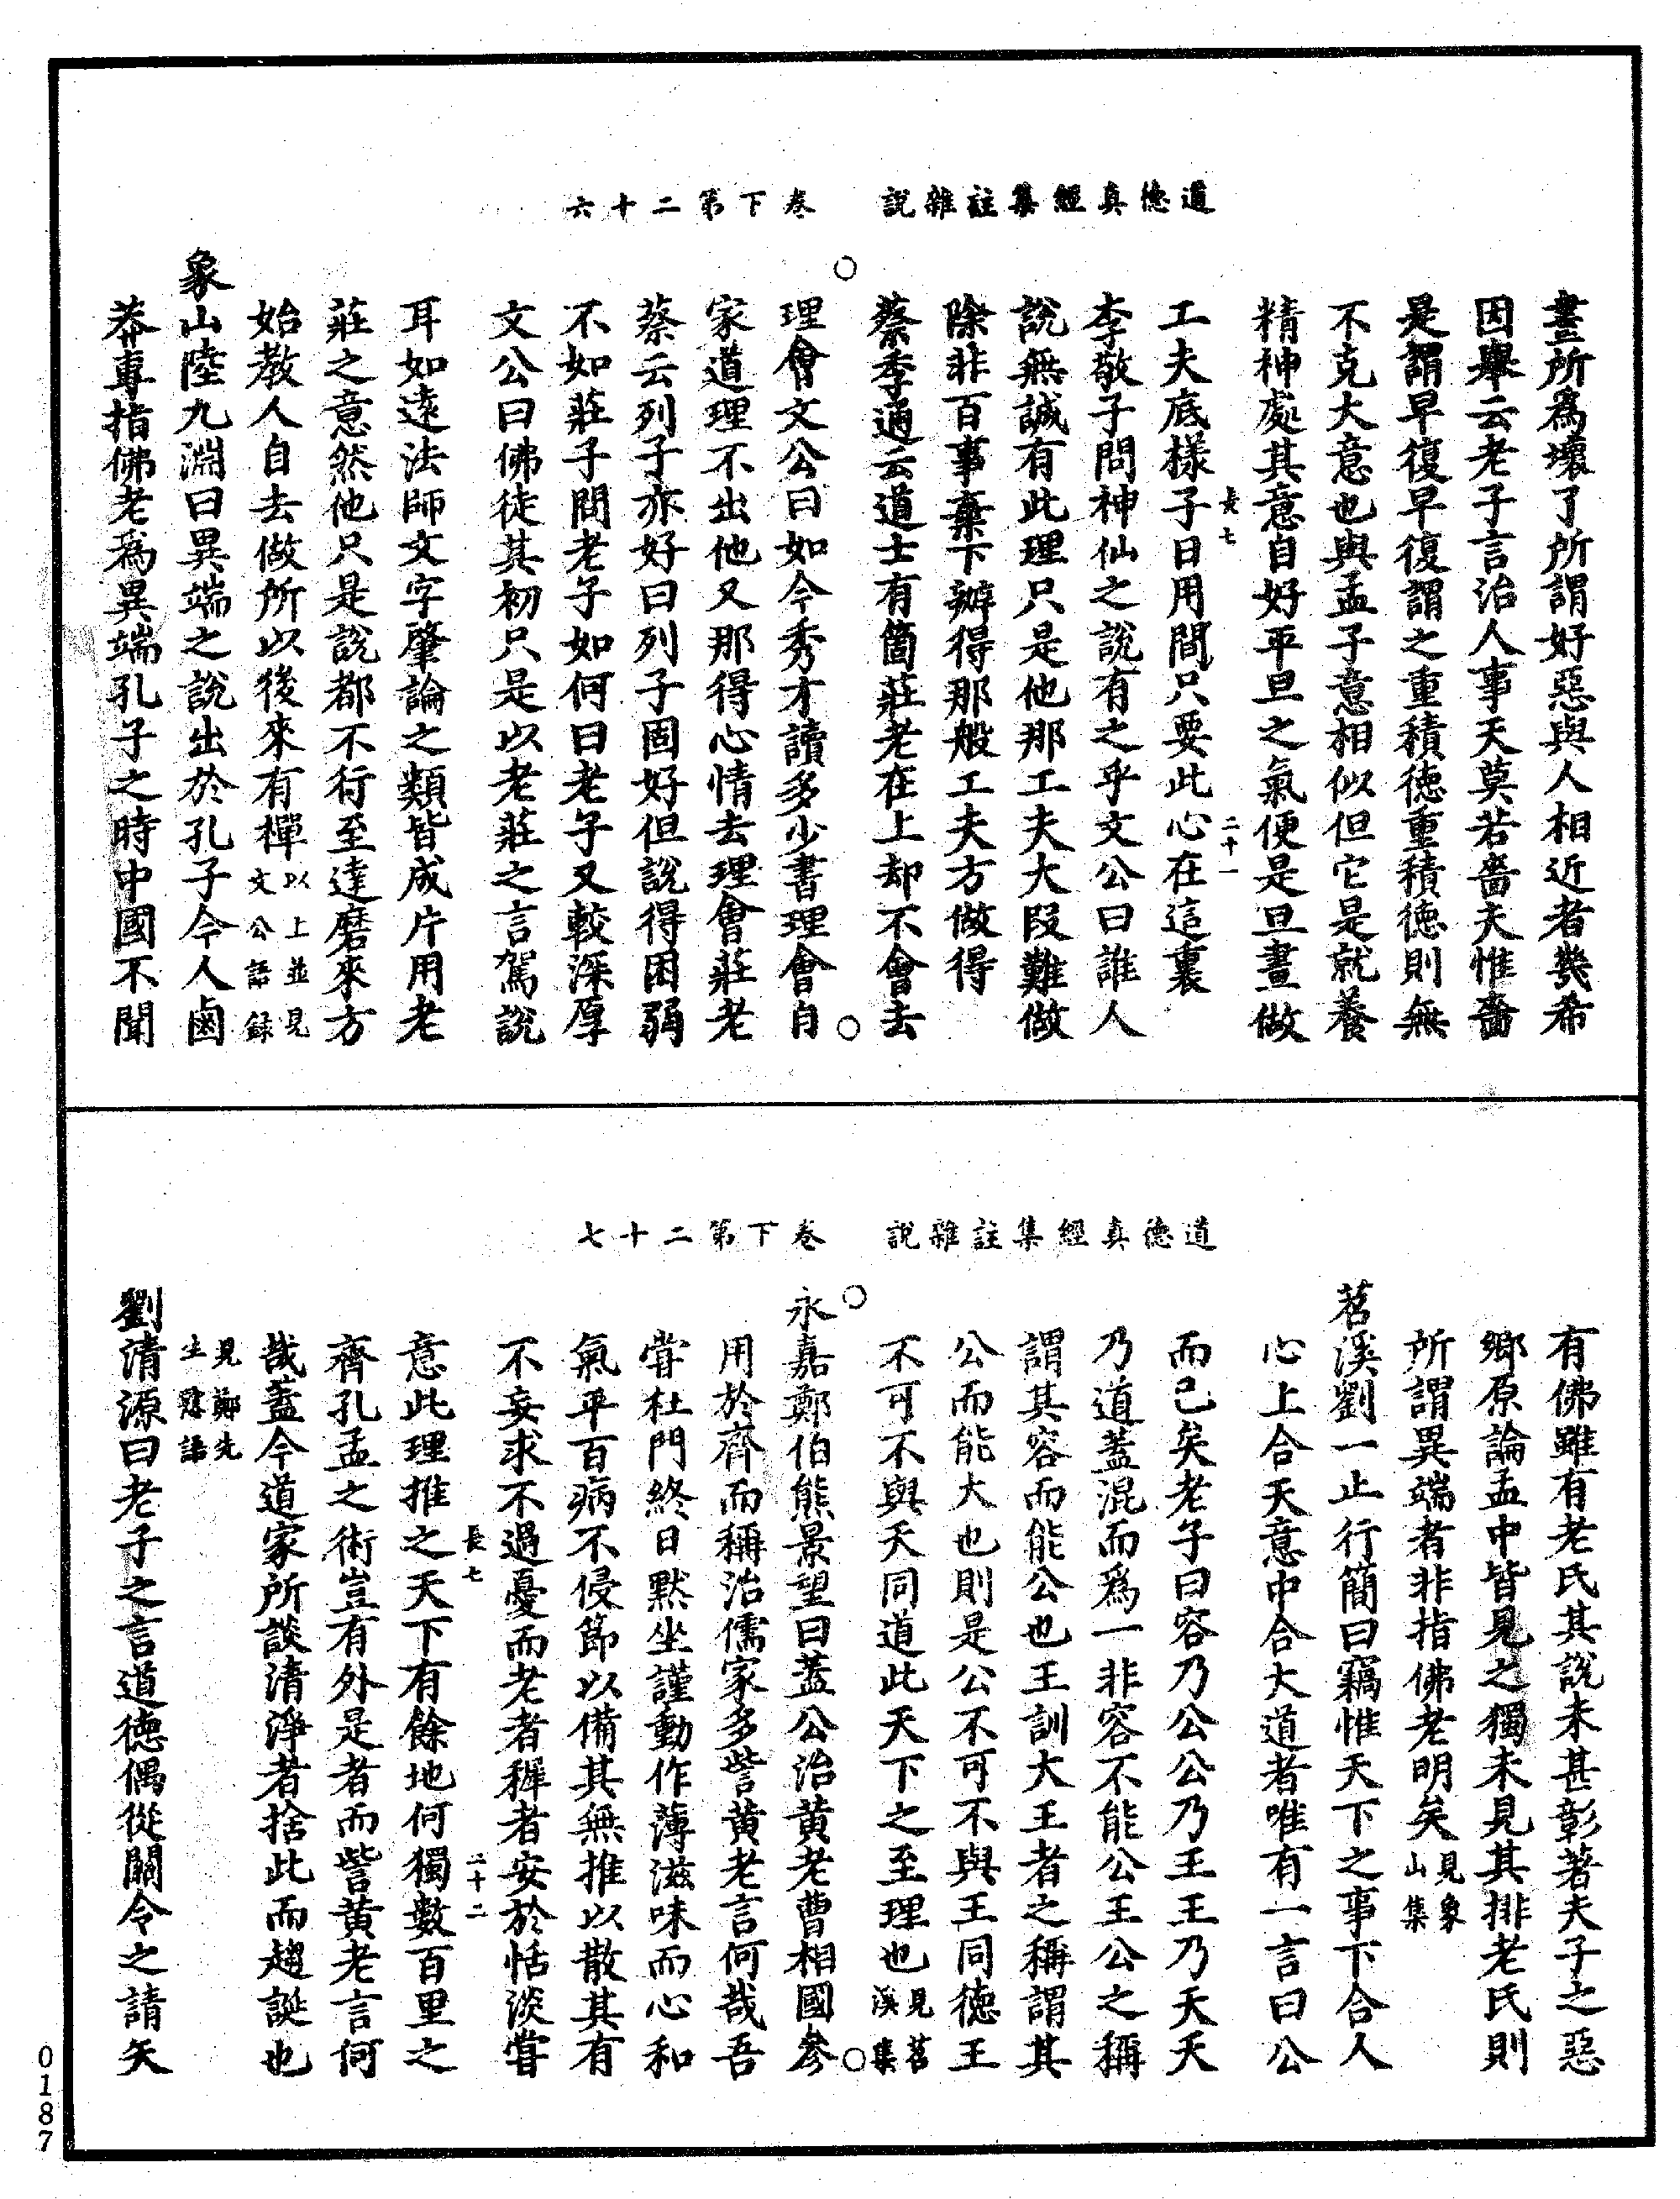 道德真經集註雜說　卷下第二十六
晝所為壞了所謂好惡與人相近者幾希
因舉云老子言治人事天莫若嗇夫惟嗇
是謂早復早復謂之重積德重積德則無
不克大意也與孟子意相似但它是就養
精神處其意自好平旦之氣便是旦晝做
長七　二十一
工夫底樣子日用間只要此心在這裏
李敬子問神仙之說有之乎文公曰誰人
說無誠有此理只是他那工夫大段難做
除非百事棄下辦得那般工夫方做得
蔡季通云道士有箇莊老在上却不會去
理會文公曰如今秀才讀多少書理會自
家道理不出他又那得心情去理會莊老
蔡云列子亦好曰列子固好但說得困弱
不如莊子問老子如何曰老子又較深厚
文公曰佛徒其初只是以老莊之言駕說
耳如遠法師文字肇論之類皆成片用老
莊之意然他只是說都不行至達磨來方
始教人自去做所以後來有禪以上並見文公語録
象山陸九淵曰異端之說出於孔子今人鹵
莽專指佛老為異端孔子之時中國不聞
道德真經集註雜說　卷下第二十七
有佛雖有老氏其說未甚彰著夫子之惡
鄉原論孟中皆見之獨未見其排老氏則
所謂異端者非指佛老明矣見象山集
苕溪劉一止行簡曰竊惟天下之事下合人
心上合天意中合大道者唯有一言曰公
而已矣老子曰容乃公公乃王王乃天天
乃道蓋混而為一非容不能公王公之稱
謂其容而能公也王訓大王者之稱謂其
公而能大也則是公不可不與王同德王
不可不與天同道此天下之至理也見苕溪集
永嘉鄭伯熊景望曰蓋公治黃老曹相國參
用於齊而稱治儒家多訾黃老言何哉吾
嘗杜門終日默坐謹動作薄滋味而心和
氣平百病不侵節以備其無推以散其有
不妄求不過憂而老者穉者安於恬淡嘗
長七　二十二
意此理推之天下有餘地何獨數百里之
齊孔孟之術豈有外是者而訾黃老言何
哉蓋今道家所談清淨者捨此而趨誕也
見鄭先生語
劉清源曰老子之言道德偶從關令之請矢
0187